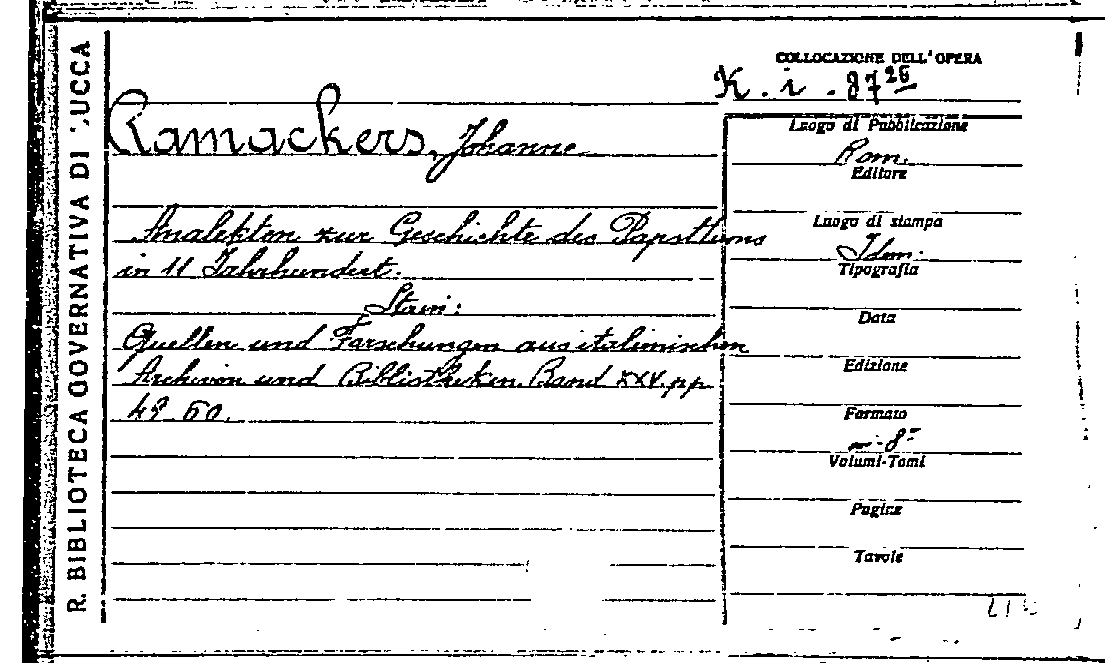 R. BIBLIOTECA GOVERNATIVA DI LUCCA
COLLOCAZIONE DELL'OPERA
K. i. 87 26
Ramackers, Johanne
Analekten zur Geschichte des Papsttums
in 11 Jahrhundert.
Stani:
Quellen und Forschungen aus italinischen
Archiven und Bibliotheken. Band XXV. pp.
49-60.
Luogo di Pubblicazione
Rom.
Editore
Luogo di stampa
Idem.
Tipografia
Data
Edizione
Formato
in-8°
Volumi-Tomi
Pagine
Tavole